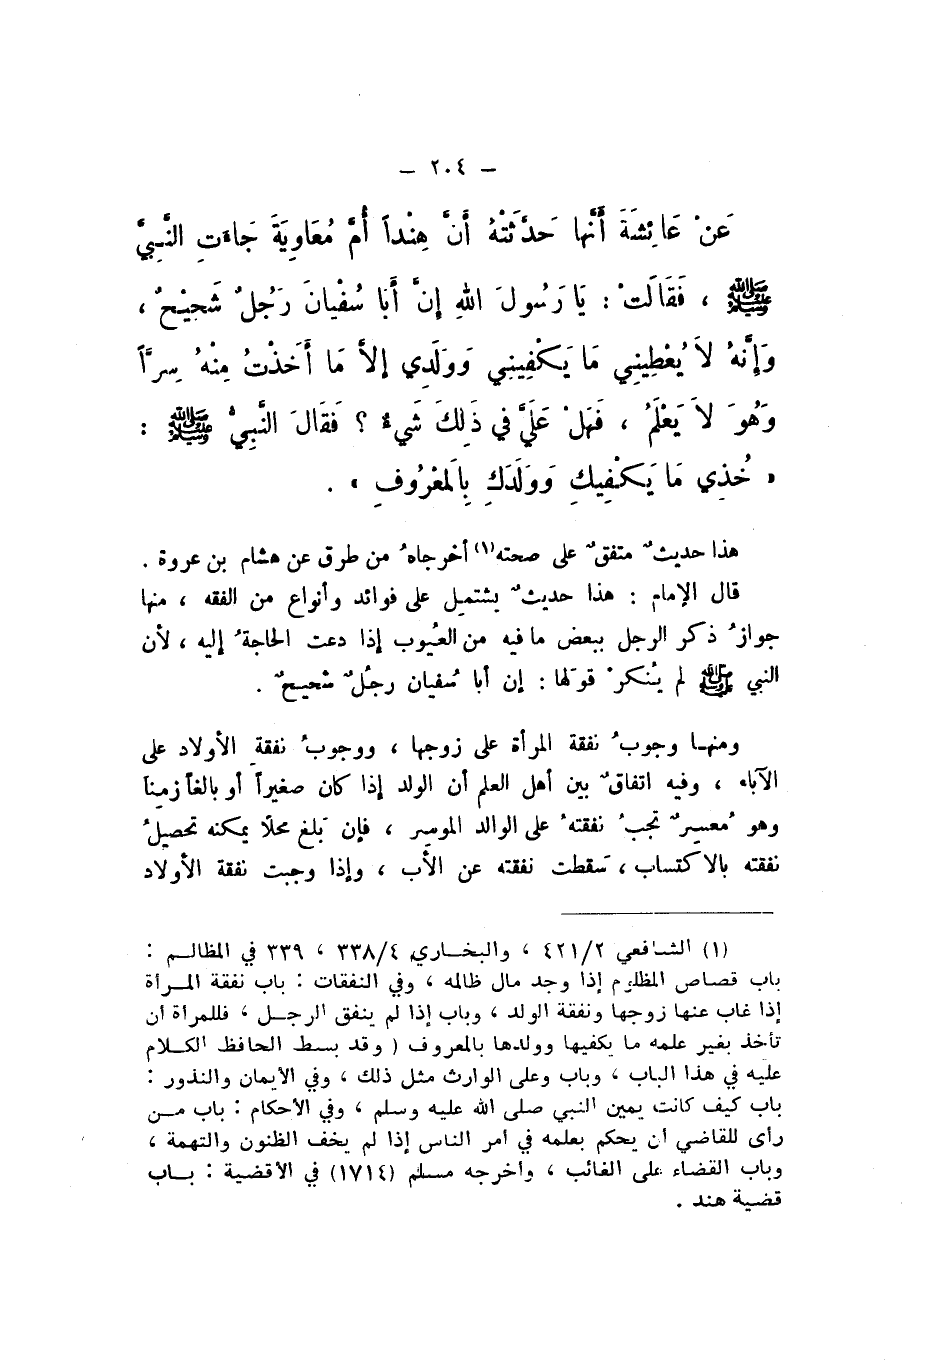 — ٢٠٤ —
عَنْ عَائِشَةَ أَنَّها حَدَّثَتْهُ أَنَّ هِنْداً أُمَّ مُعَاوِيَةَ جَاءَتِ النَّبِيَّ
ﷺ ، فَقَالَتْ : يَا رَسُولَ اللهِ إِنَّ أَبَا سُفْيانَ رَجُلٌ شَحِيْحٌ ،
وَإِنَّهُ لاَ يُعْطِيني مَا يَكْفِيني وَوَلَدِي إِلاَّ مَا أَخَذْتُ مِنْهُ سِرَّاً
وَهُوَ لاَ يَعْلَمُ ، فَهَلْ عَلَيَّ في ذَلِكَ شَيءٌ ؟ فَقَالَ النَّبِيُّ ﷺ :
« خُذِي مَا يَكْفِيكِ وَوَلَدَكِ بِالمَعْرُوفِ » .
هذا حديثٌ متفقٌ على صحته(١) أخرجاهُ من طرق عن هشام بن عروة .
قال الإمام : هذا حديثٌ يشتمل على فوائد وأنواع من الفقه ، منها
جوازُ ذكر الرجل ببعض ما فيه من العُيوب إذا دعت الحاجةُ إليه ، لأن
النبي ﷺ لم يُنكرْ قولَها : إن أبا سُفيان رجُلٌ شحيحٌ .
ومنها وجوبُ نفقة المرأة على زوجها ، ووجوبُ نفقةِ الأولاد على
الآباء ، وفيه اتفاقٌ بين أهل العلم أن الولد إذا كان صغيراً أو بالغاً زمِناً
وهو مُعسِرٌ تجبُ نفقتهُ على الوالد الموسِر ، فإن بَلغ محلاً يمكنه تحصيلُ
نفقته بالاكتساب ، سَقطت نفقته عن الأب ، وإذا وجبت نفقة الأولاد
(١) الشافعي ٤٢١/٢ ، والبخاري ٣٣٨/٤ ، ٣٣٩ في المظالم :
باب قصاص المظلوم إذا وجد مال ظالمه ، وفي النفقات : باب نفقة المرأة
إذا غاب عنها زوجها ونفقة الولد ، وباب إذا لم ينفق الرجل ، فللمرأة أن
تأخذ بغير علمه ما يكفيها وولدها بالمعروف ( وقد بسط الحافظ الكلام
عليه في هذا الباب ، وباب وعلى الوارث مثل ذلك ، وفي الأيمان والنذور :
باب كيف كانت يمين النبي صلى الله عليه وسلم ، وفي الأحكام : باب من
رأى للقاضي أن يحكم بعلمه في أمر الناس إذا لم يخف الظنون والتهمة ،
وباب القضاء على الغائب ، وأخرجه مسلم (١٧١٤) في الأقضية : باب
قضية هند .